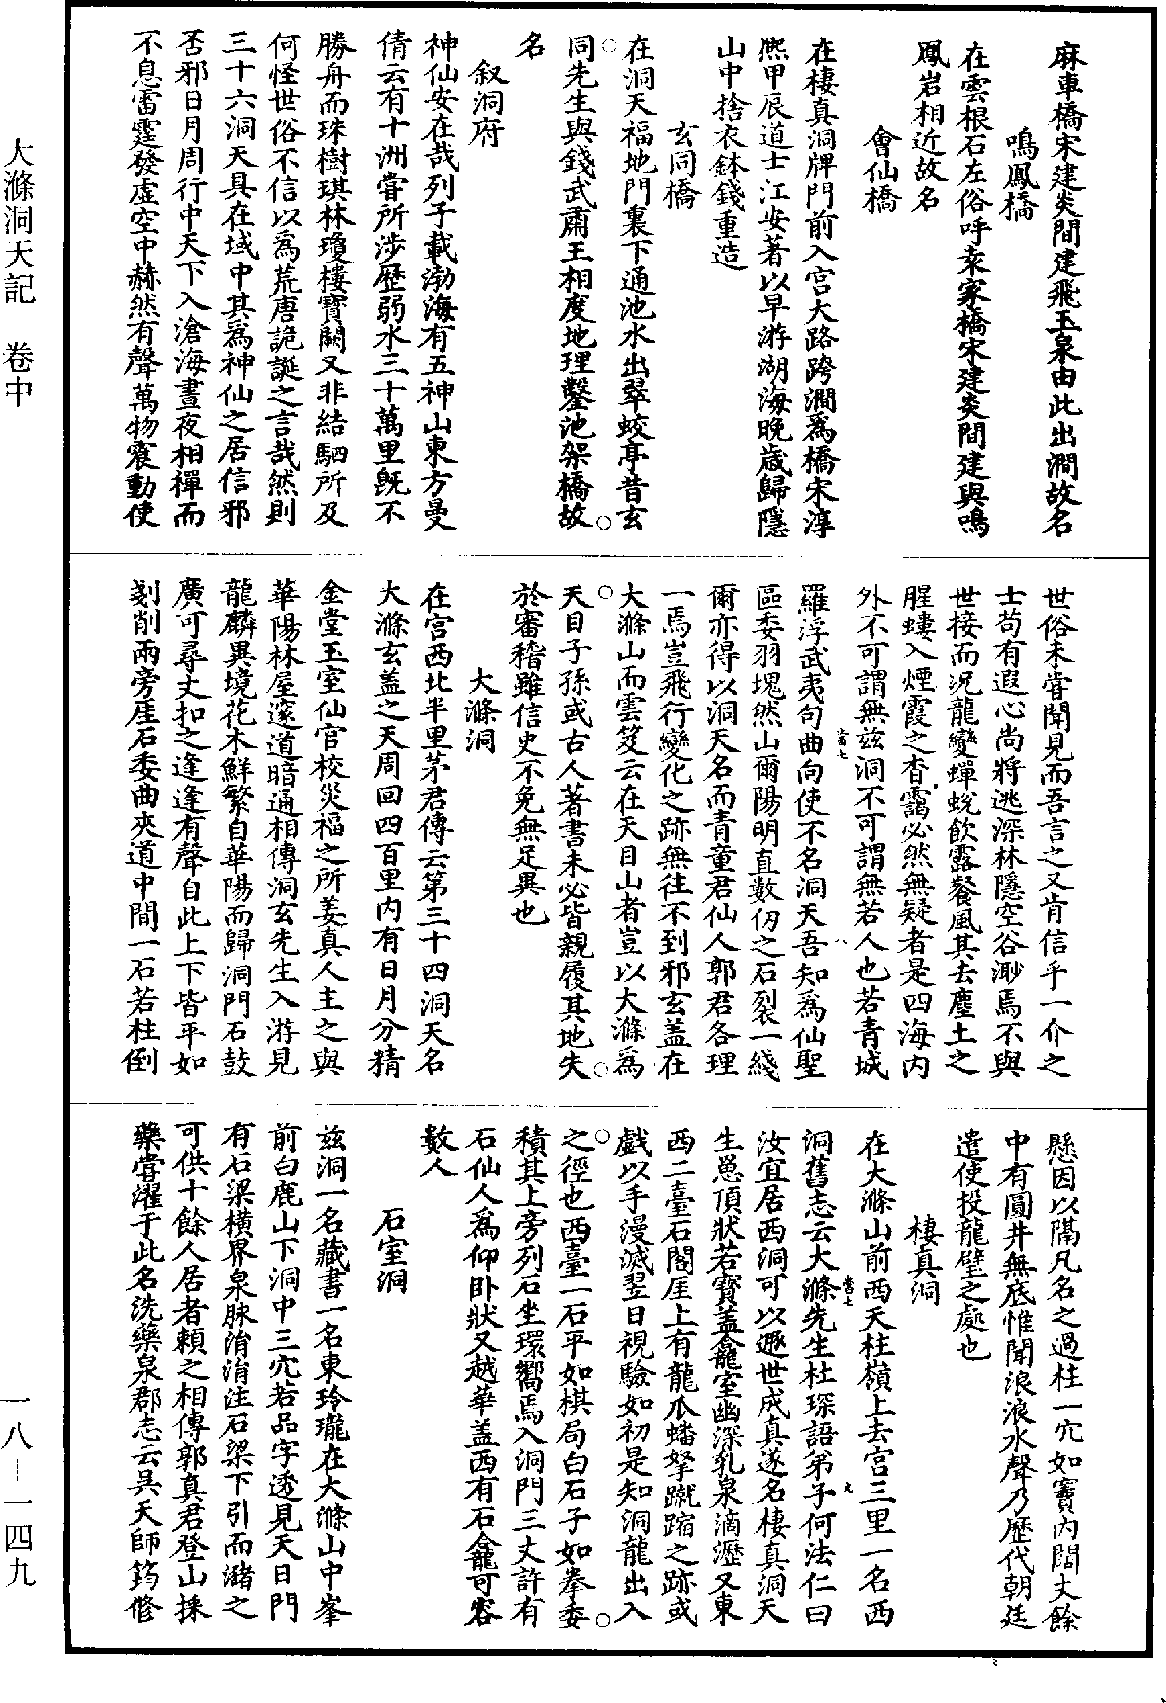 大滌洞天記　卷中
一八—一四九
麻車橋宋建炎間建飛玉泉由此出澗故名
鳴鳳橋
在雲根石左俗呼袁家橋宋建炎間建與鳴
鳳岩相近故名
會仙橋
在棲真洞牌門前入宮大路跨澗爲橋宋淳
熈甲辰道士江安著以早游湖海晚歲歸隱
山中捨衣鉢錢重造
玄同橋
在洞天福地門裏下通池水出翠蛟亭昔玄
同先生與錢武肅王相度地理鑿池架橋故
名
叙洞府
神仙安在哉列子載渤海有五神山東方曼
倩云有十洲嘗所涉歷弱水三十萬里旣不
勝舟而珠樹琪林瓊樓寶闕又非結駟所及
何怪世俗不信以爲荒唐詭誕之言哉然則
三十六洞天具在域中其爲神仙之居信邪
否邪日月周行中天下入滄海晝夜相禪而
不息雷霆發虛空中赫然有聲萬物震動使
世俗未嘗聞見而吾言之又肯信乎一介之
士苟有遐心尚將逃深林隱空谷渺焉不與
世接而況龍變蟬蛻飲露餐風其去塵土之
腥螻入煙霞之杳靄必然無疑者是四海內
外不可謂無兹洞不可謂無若人也若青城
羅浮武夷句曲向使不名洞天吾知爲仙聖
區委羽塊然山爾陽明直數仞之石裂一綫
爾亦得以洞天名而青童君仙人郭君各理
一焉豈飛行變化之跡無往不到邪玄盖在
大滌山而雲笈云在天目山者豈以大滌爲
天目子孫或古人著書未必皆親履其地失
於審稽雖信史不免無足異也
大滌洞
在宮西北半里茅君傳云第三十四洞天名
大滌玄盖之天周回四百里內有日月分精
金堂玉室仙官校災福之所姜真人主之與
華陽林屋邃道暗通相傳洞玄先生入游見
龍麟異境花木鮮繁自華陽而歸洞門石鼓
廣可尋丈扣之逢逢有聲自此上下皆平如
刻削兩旁厓石委曲夾道中間一石若柱倒
懸因以隔凡名之過柱一穴如竇內闊丈餘
中有圓井無底惟聞浪浪水聲乃歷代朝廷
遣使投龍璧之處也
棲真洞
在大滌山前西天柱嶺上去宮三里一名西
洞舊志云大滌先生杜琛語弟子何法仁曰
汝宜居西洞可以遯世成真遂名棲真洞天
生慝頂狀若寶盖龕室幽深乳泉滴瀝又東
西二臺石閣厓上有龍爪蟠拏蹴蹜之跡或
戲以手漫滅翌日視驗如初是知洞龍出入
之徑也西臺一石平如棋局白石子如拳委
積其上旁列石坐環嚮焉入洞門三丈許有
石仙人爲仰卧狀又越華盖西有石龕可容
數人
石室洞
兹洞一名藏書一名東玲瓏在大滌山中峯
前白鹿山下洞中三穴若品字透見天日門
有石梁橫界泉脉涓涓注石梁下引而瀦之
可供十餘人居者賴之相傳郭真君登山採
藥嘗濯于此名洗藥泉郡志云吳天師筠修